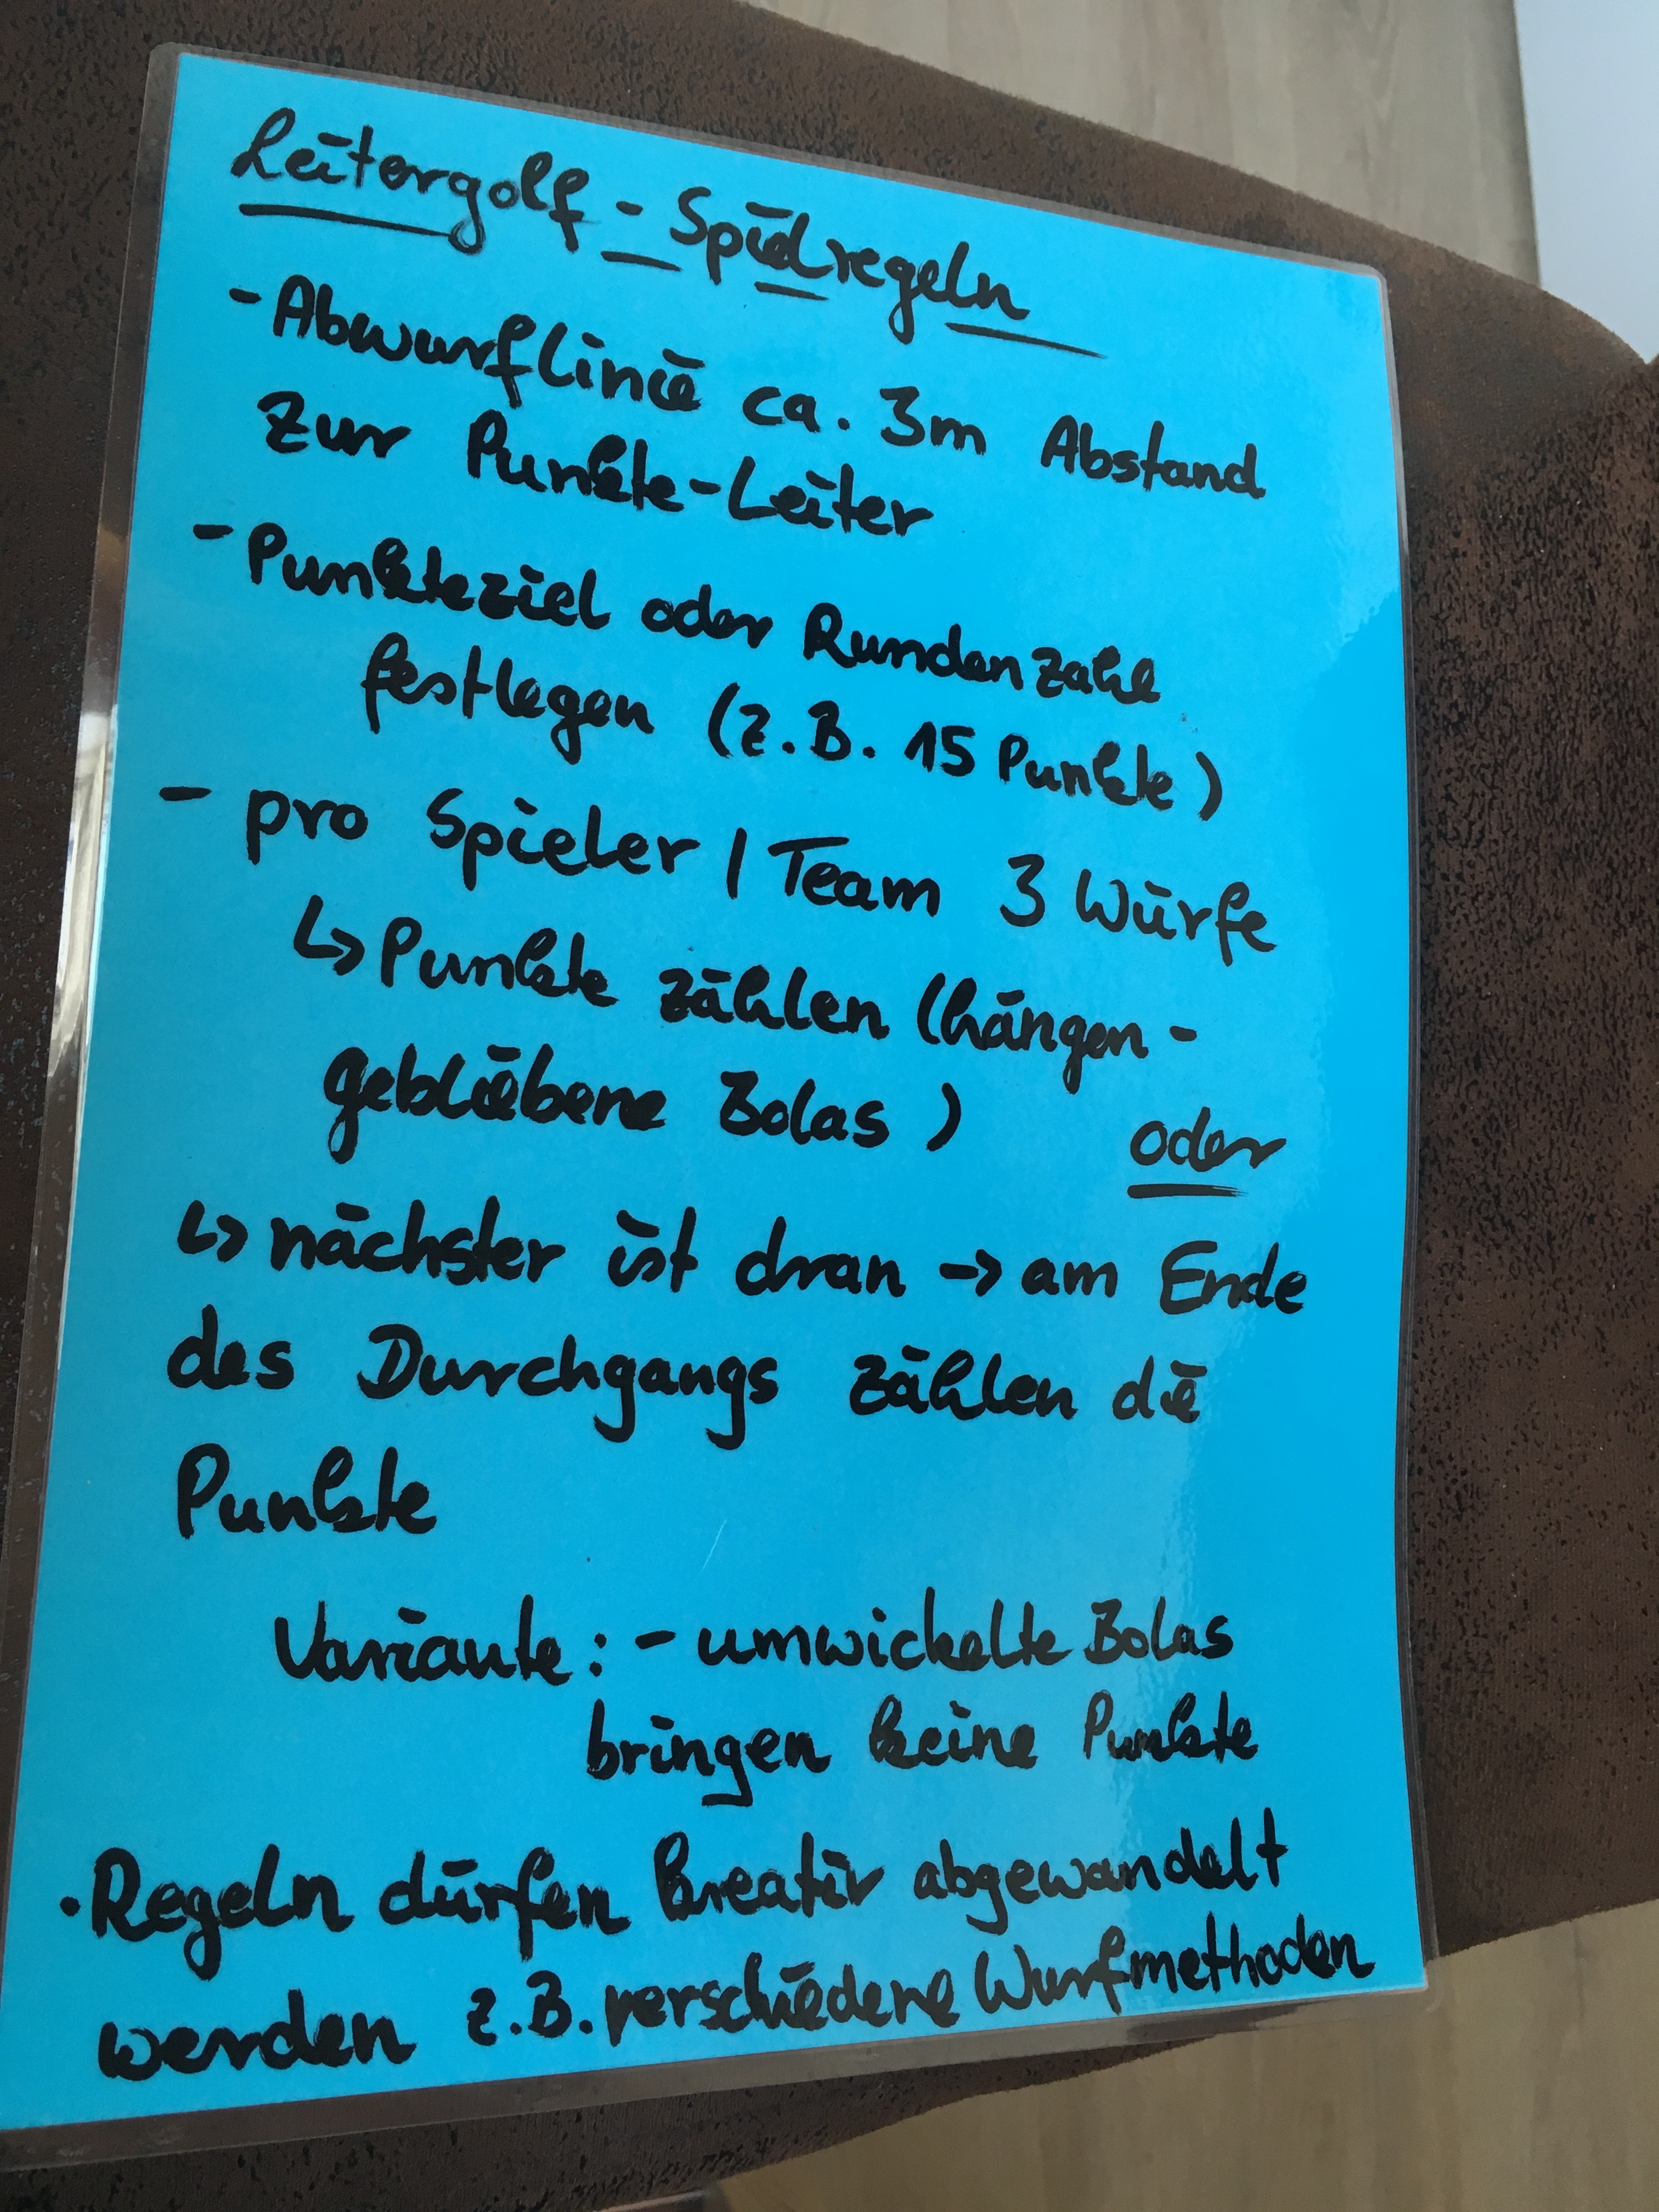 Leitergolf - Spielregeln
- Abwurflinie ca. 3m Abstand
zur Punkte-Leiter
- Punkteziel oder Rundenzahl
festlegen (z.B. 15 Punkte)
- pro Spieler / Team 3 Würfe
↳ Punkte zählen (hängen-
gebliebene Bolas)
oder
↳ nächster ist dran → am Ende
des Durchgangs zählen die
Punkte
Variante: - umwickelte Bolas
bringen keine Punkte
· Regeln dürfen kreativ abgewandelt
werden z.B. verschiedene Wurfmethoden